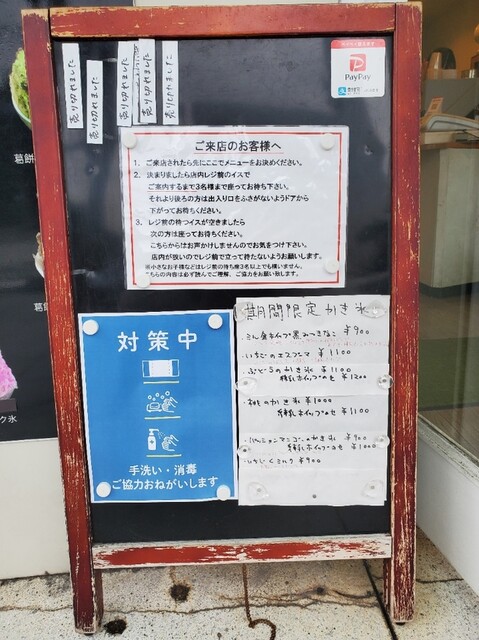 売り切れました
売り切れました
売り切れました
売り切れました
売り切れました
PayPay
ご来店のお客様へ
1. ご来店されたら先にここでメニューをお決めください。
2. 決まりましたら店内レジ前のイスで
ご案内するまで3名様まで座ってお待ち下さい。
それより後ろの方は出入り口をふさがないようドアから
下がってお待ちください。
3. レジ前の待つイスが空きましたら
次の方は座ってお待ちください。
こちらからはお声かけしませんのでお気をつけ下さい。
店内が狭いのでレジ前で立って待たないようお願いします。
※小さなお子様などはレジ前の待ち席3名以上でも構いません。
こちらの内容は必ず読んでご理解、ご協力をお願い致します。
対策中
手洗い・消毒
ご協力おねがいします
期間限定かき氷
¥900
・いちじのエスプーマ ¥1100
・ぶどうのかき氷 ¥1100
練乳ホイップのせ ¥1200
・桃のかき氷 ¥1000
練乳ホイップのせ ¥1100
・パッションマンゴーのかき氷 ¥900
練乳ホイップのせ ¥1000
・いちじくミルク ¥900
葛餅
葛餅
ク氷